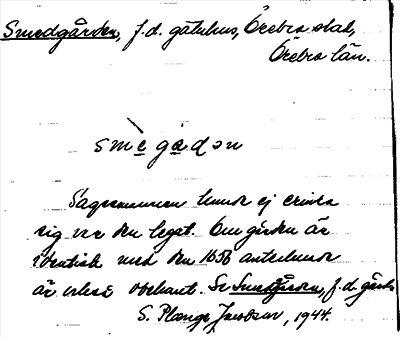 Smedgården, f.d. gästhus, Örebro stad,
Örebro län.
smègạdən
Sagesmannen kunde ej erinra
sig var den legat. Om gården är
identisk med den 1656 antecknade
är också obekant. Se Smedgården, f.d. gård
S. Plænge Jacobson, 1944.